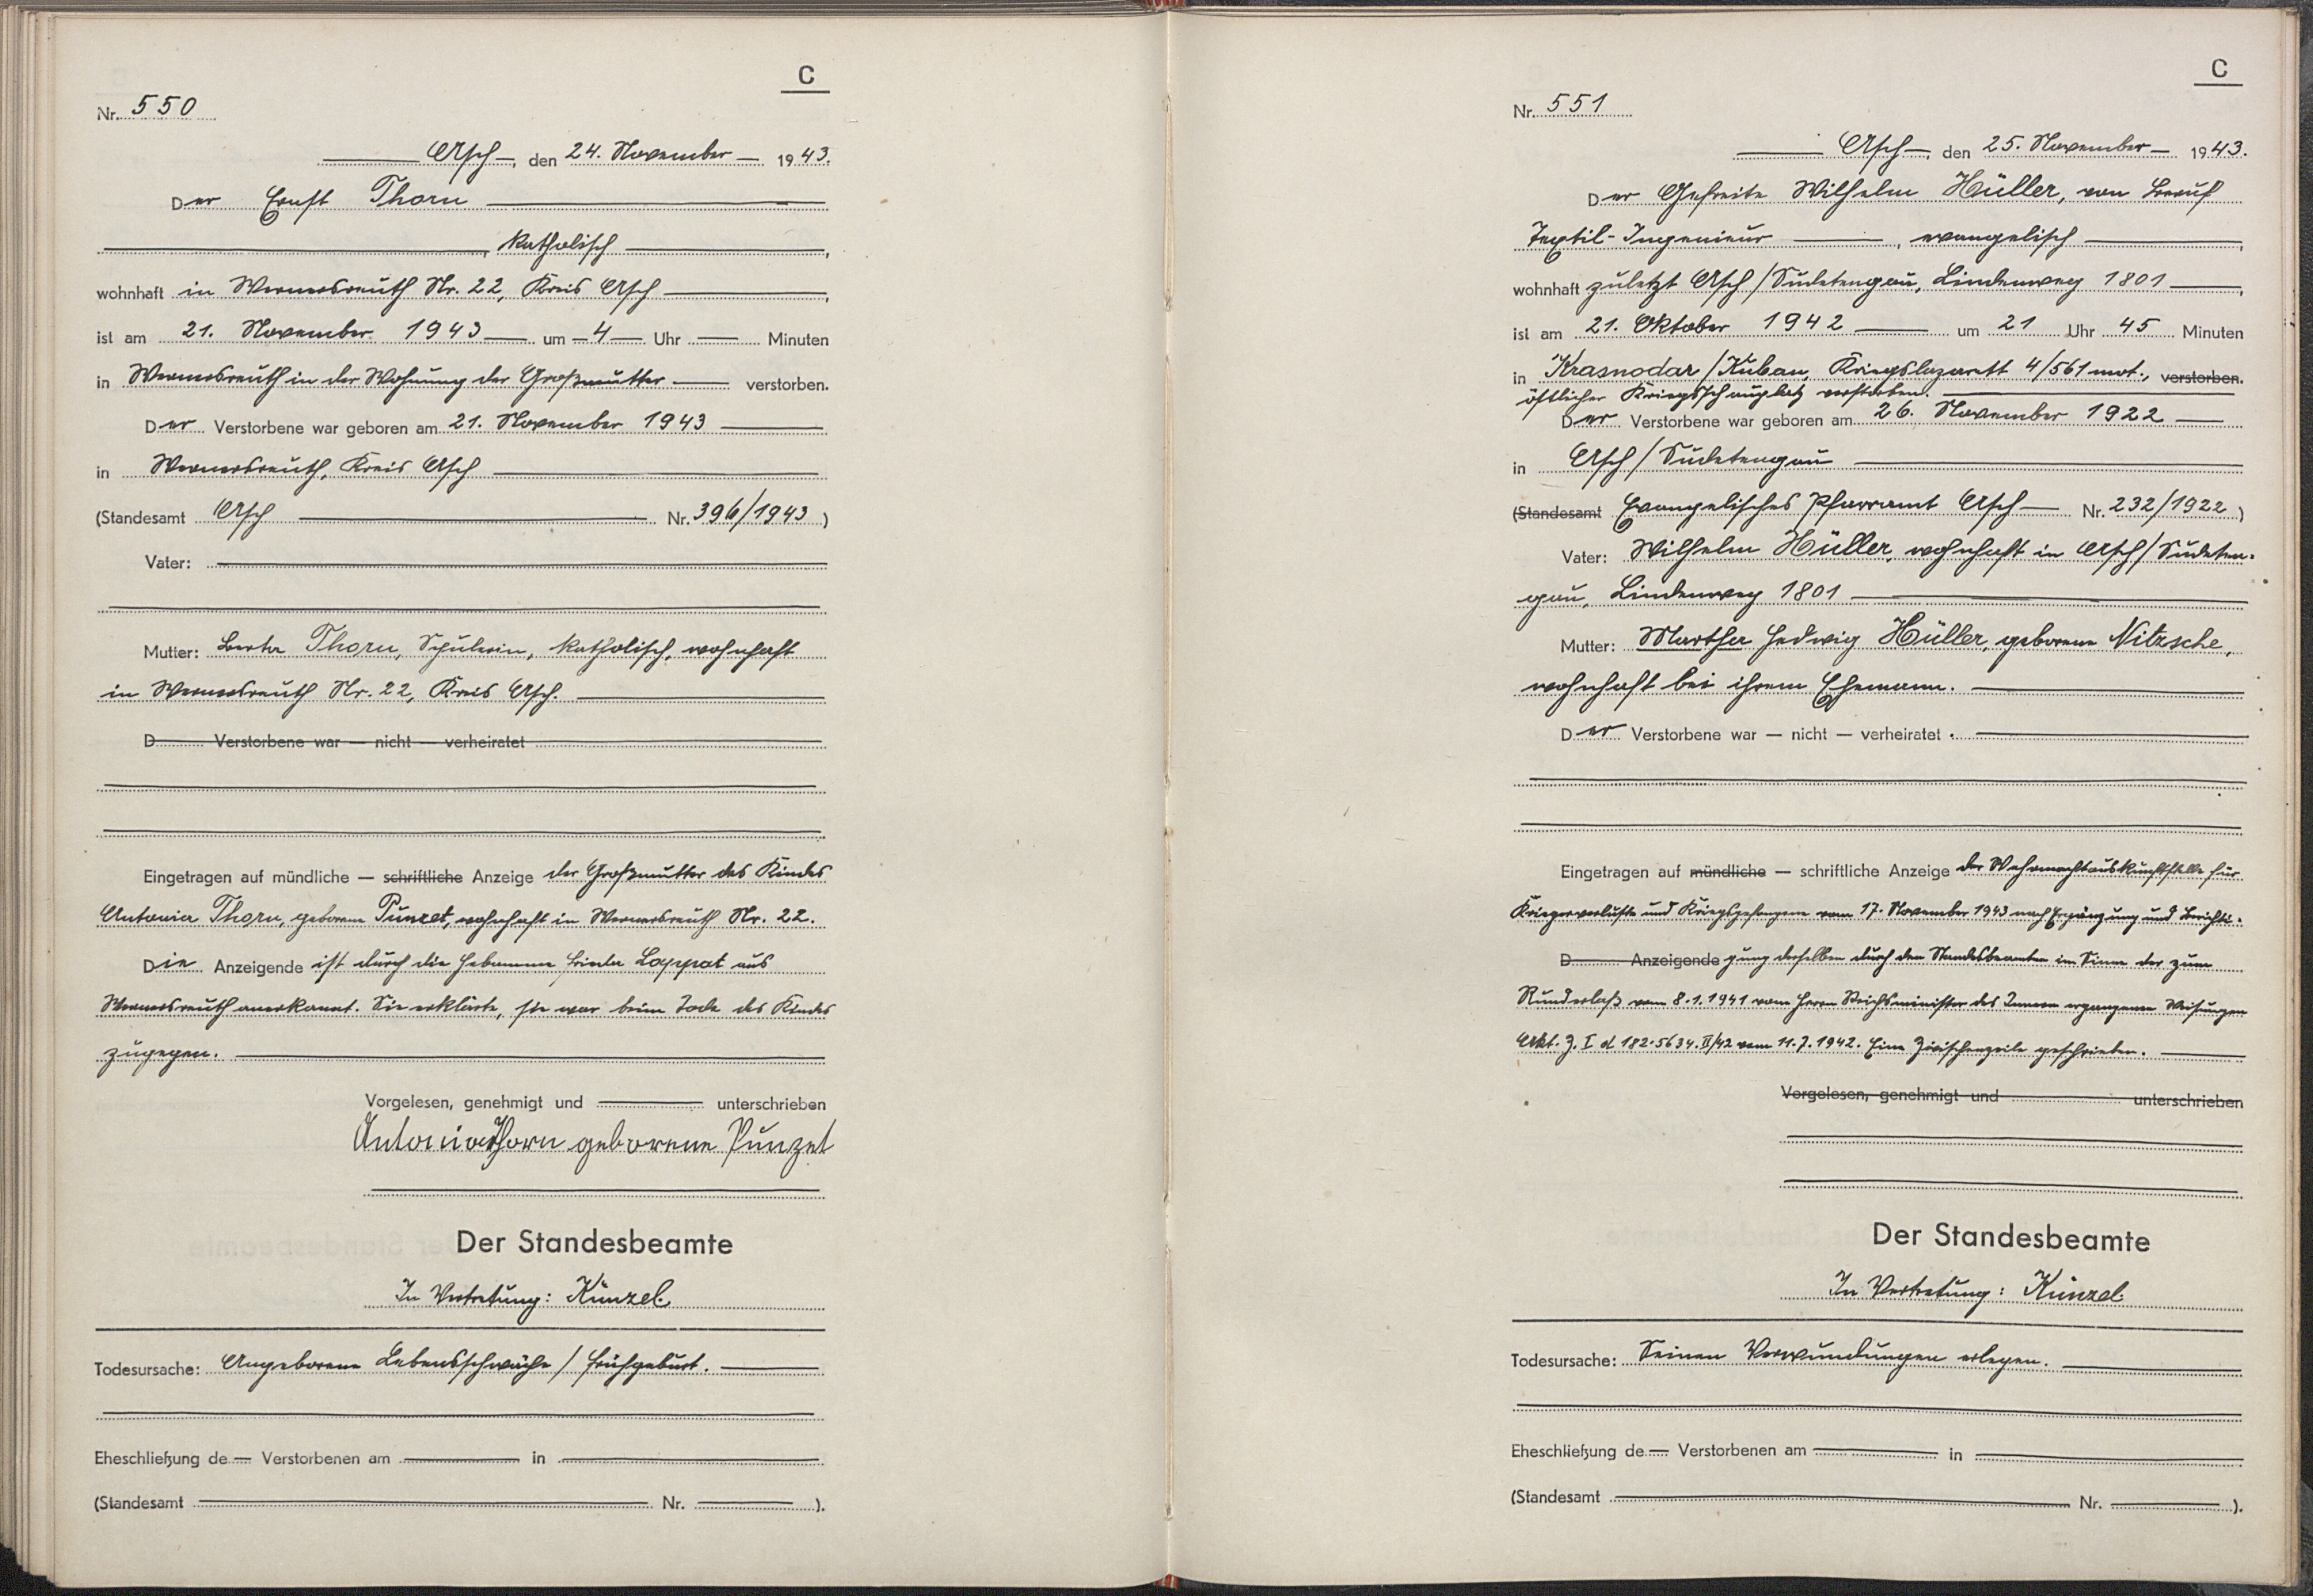 C
Nr. 550
Asch, den 24. November 1943.
Der Ernst Thorn
katholisch,
wohnhaft in Wernersreuth Nr. 22, Kreis Asch,
ist am 21. November 1943 um 4 Uhr Minuten
in Wernersreuth in der Wohnung der Großmutter verstorben.
Der Verstorbene war geboren am 21. November 1943
in Wernersreuth, Kreis Asch
(Standesamt Asch Nr. 396/1943)
Vater:
Mutter: Berta Thorn, Schülerin, katholisch, wohnhaft
in Wernersreuth Nr. 22, Kreis Asch.
D Verstorbene war — nicht — verheiratet
Eingetragen auf mündliche — schriftliche Anzeige der Großmutter des Kindes
Antonia Thorn, geborene Punzet, wohnhaft in Wernersreuth Nr. 22.
Die Anzeigende ist durch die Hebamme Frieda Lappat aus
Wernersreuth anerkannt. Sie erklärte, sie war beim Tode des Kindes
zugegen.
Vorgelesen, genehmigt und unterschrieben
Antonia Thorn geborene Punzet
Der Standesbeamte
In Vertretung: Künzel.
Todesursache: Angeborene Lebensschwäche / Frühgeburt.
Eheschließung de Verstorbenen am in
(Standesamt Nr. ).
C
Nr. 551
Asch, den 25. November 1943.
Der Gefreite Wilhelm Hüller, von Beruf
Textil-Ingenieur, evangelisch,
wohnhaft zuletzt Asch/Sudetengau, Lindenweg 1801,
ist am 21. Oktober 1942 um 21 Uhr 45 Minuten
in Krasnodar/Kuban, Kriegslazarett 4/561 mot., verstorben.
östlicher Kriegsschauplatz verstorben.
Der Verstorbene war geboren am 26. November 1922
in Asch/Sudetengau
(Standesamt Evangelisches Pfarramt Asch Nr. 232/1922)
Vater: Wilhelm Hüller, wohnhaft in Asch/Sudeten-
gau, Lindenweg 1801
Mutter: Martha Hedwig Hüller, geborene Nitzsche,
wohnhaft bei ihrem Ehemann.
Der Verstorbene war — nicht — verheiratet.
Eingetragen auf mündliche — schriftliche Anzeige der Wehrmachtauskunftstelle für
Kriegerverluste und Kriegsgefangene vom 17. November 1943 nach Ergänzung und Berichti-
D Anzeigende gung derselben durch den Standesbeamten im Sinne der zum
Runderlaß vom 8.1.1941 vom Herrn Reichsminister des Innern ergangenen Weisungen
Akt. Z. I d 182.5634.II/42 vom 11.7.1942. Eine Zwischenzeile geschrieben.
Vorgelesen, genehmigt und unterschrieben
Der Standesbeamte
In Vertretung: Künzel.
Todesursache: Seinen Verwundungen erlegen.
Eheschließung de Verstorbenen am in
(Standesamt Nr. ).